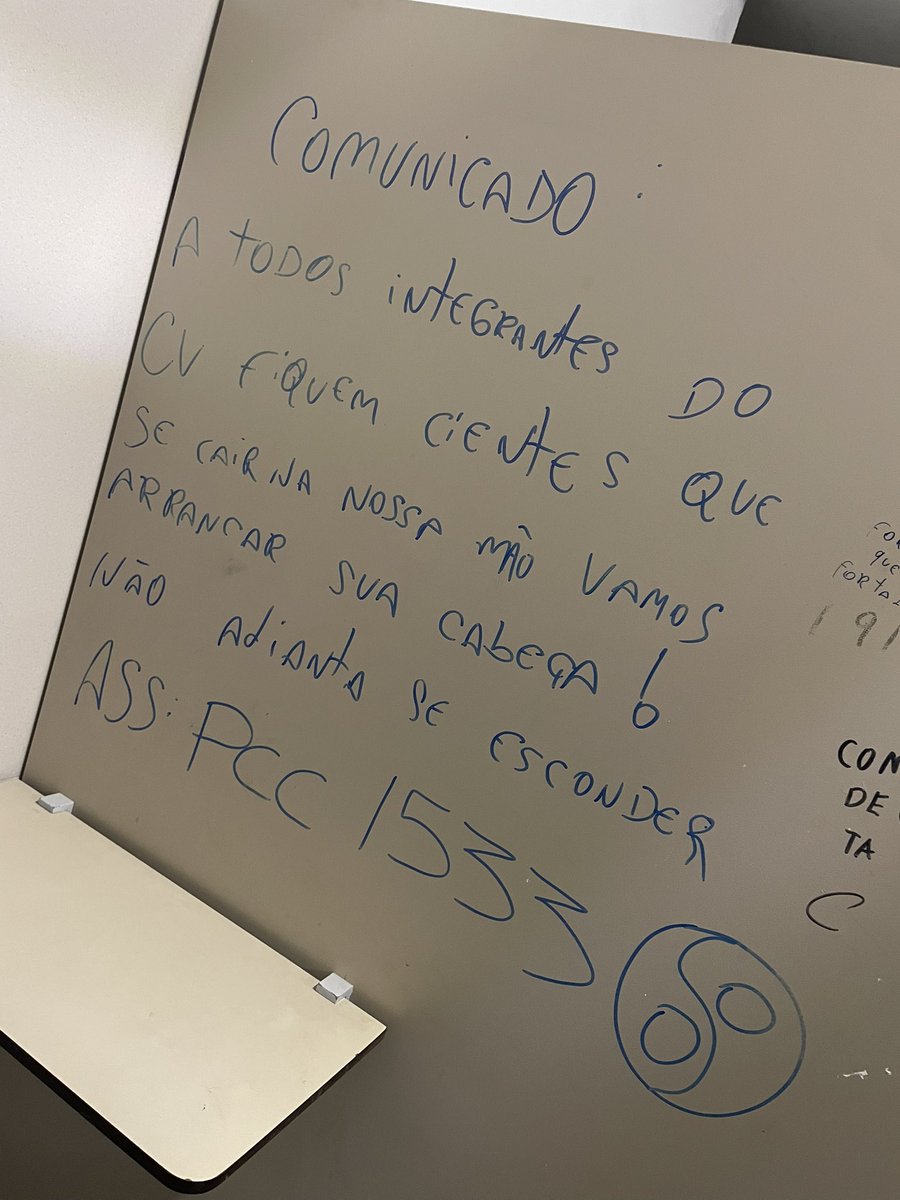 COMUNICADO:
A TODOS INTEGRANTES DO
CV FIQUEM CIENTES QUE
SE CAIR NA NOSSA MÃO VAMOS
ARRANCAR SUA CABEÇA!
NÃO ADIANTA SE ESCONDER
ASS: PCC 1533
QUE
COM
DE
TA
C